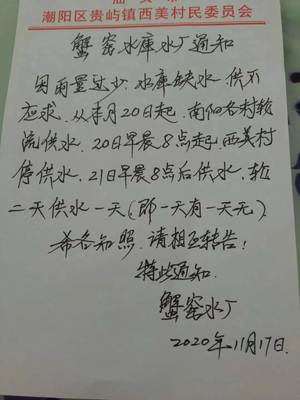 潮阳区贵屿镇西美村民委员会
蟹窑水库水厂通知
因雨量过少,水库缺水,供不
应求.从本月20日起,南阳各村轮
流供水.20日早晨8点起,西美村
停供水,21日早晨8点后供水,轮
二天供水一天(即一天有一天无)
希各知照,请相互转告!
特此通知.
蟹窑水厂
2020年11月17日.